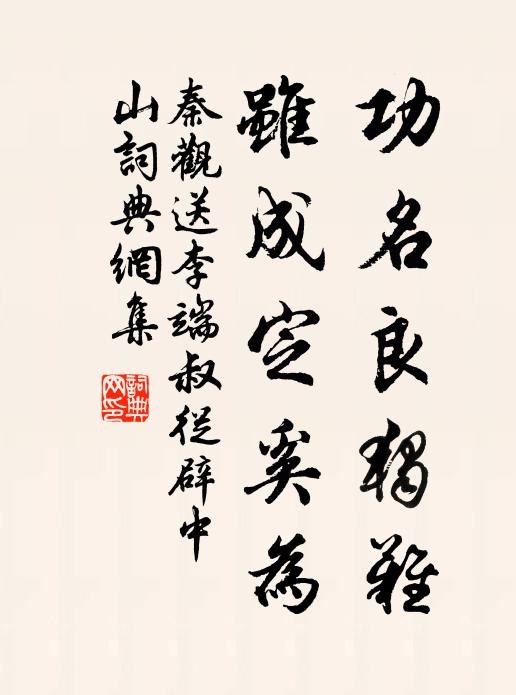 功名良獨難
雖成定奚為
秦觀送李端叔從辟中
山詞典網集
詞典
网印